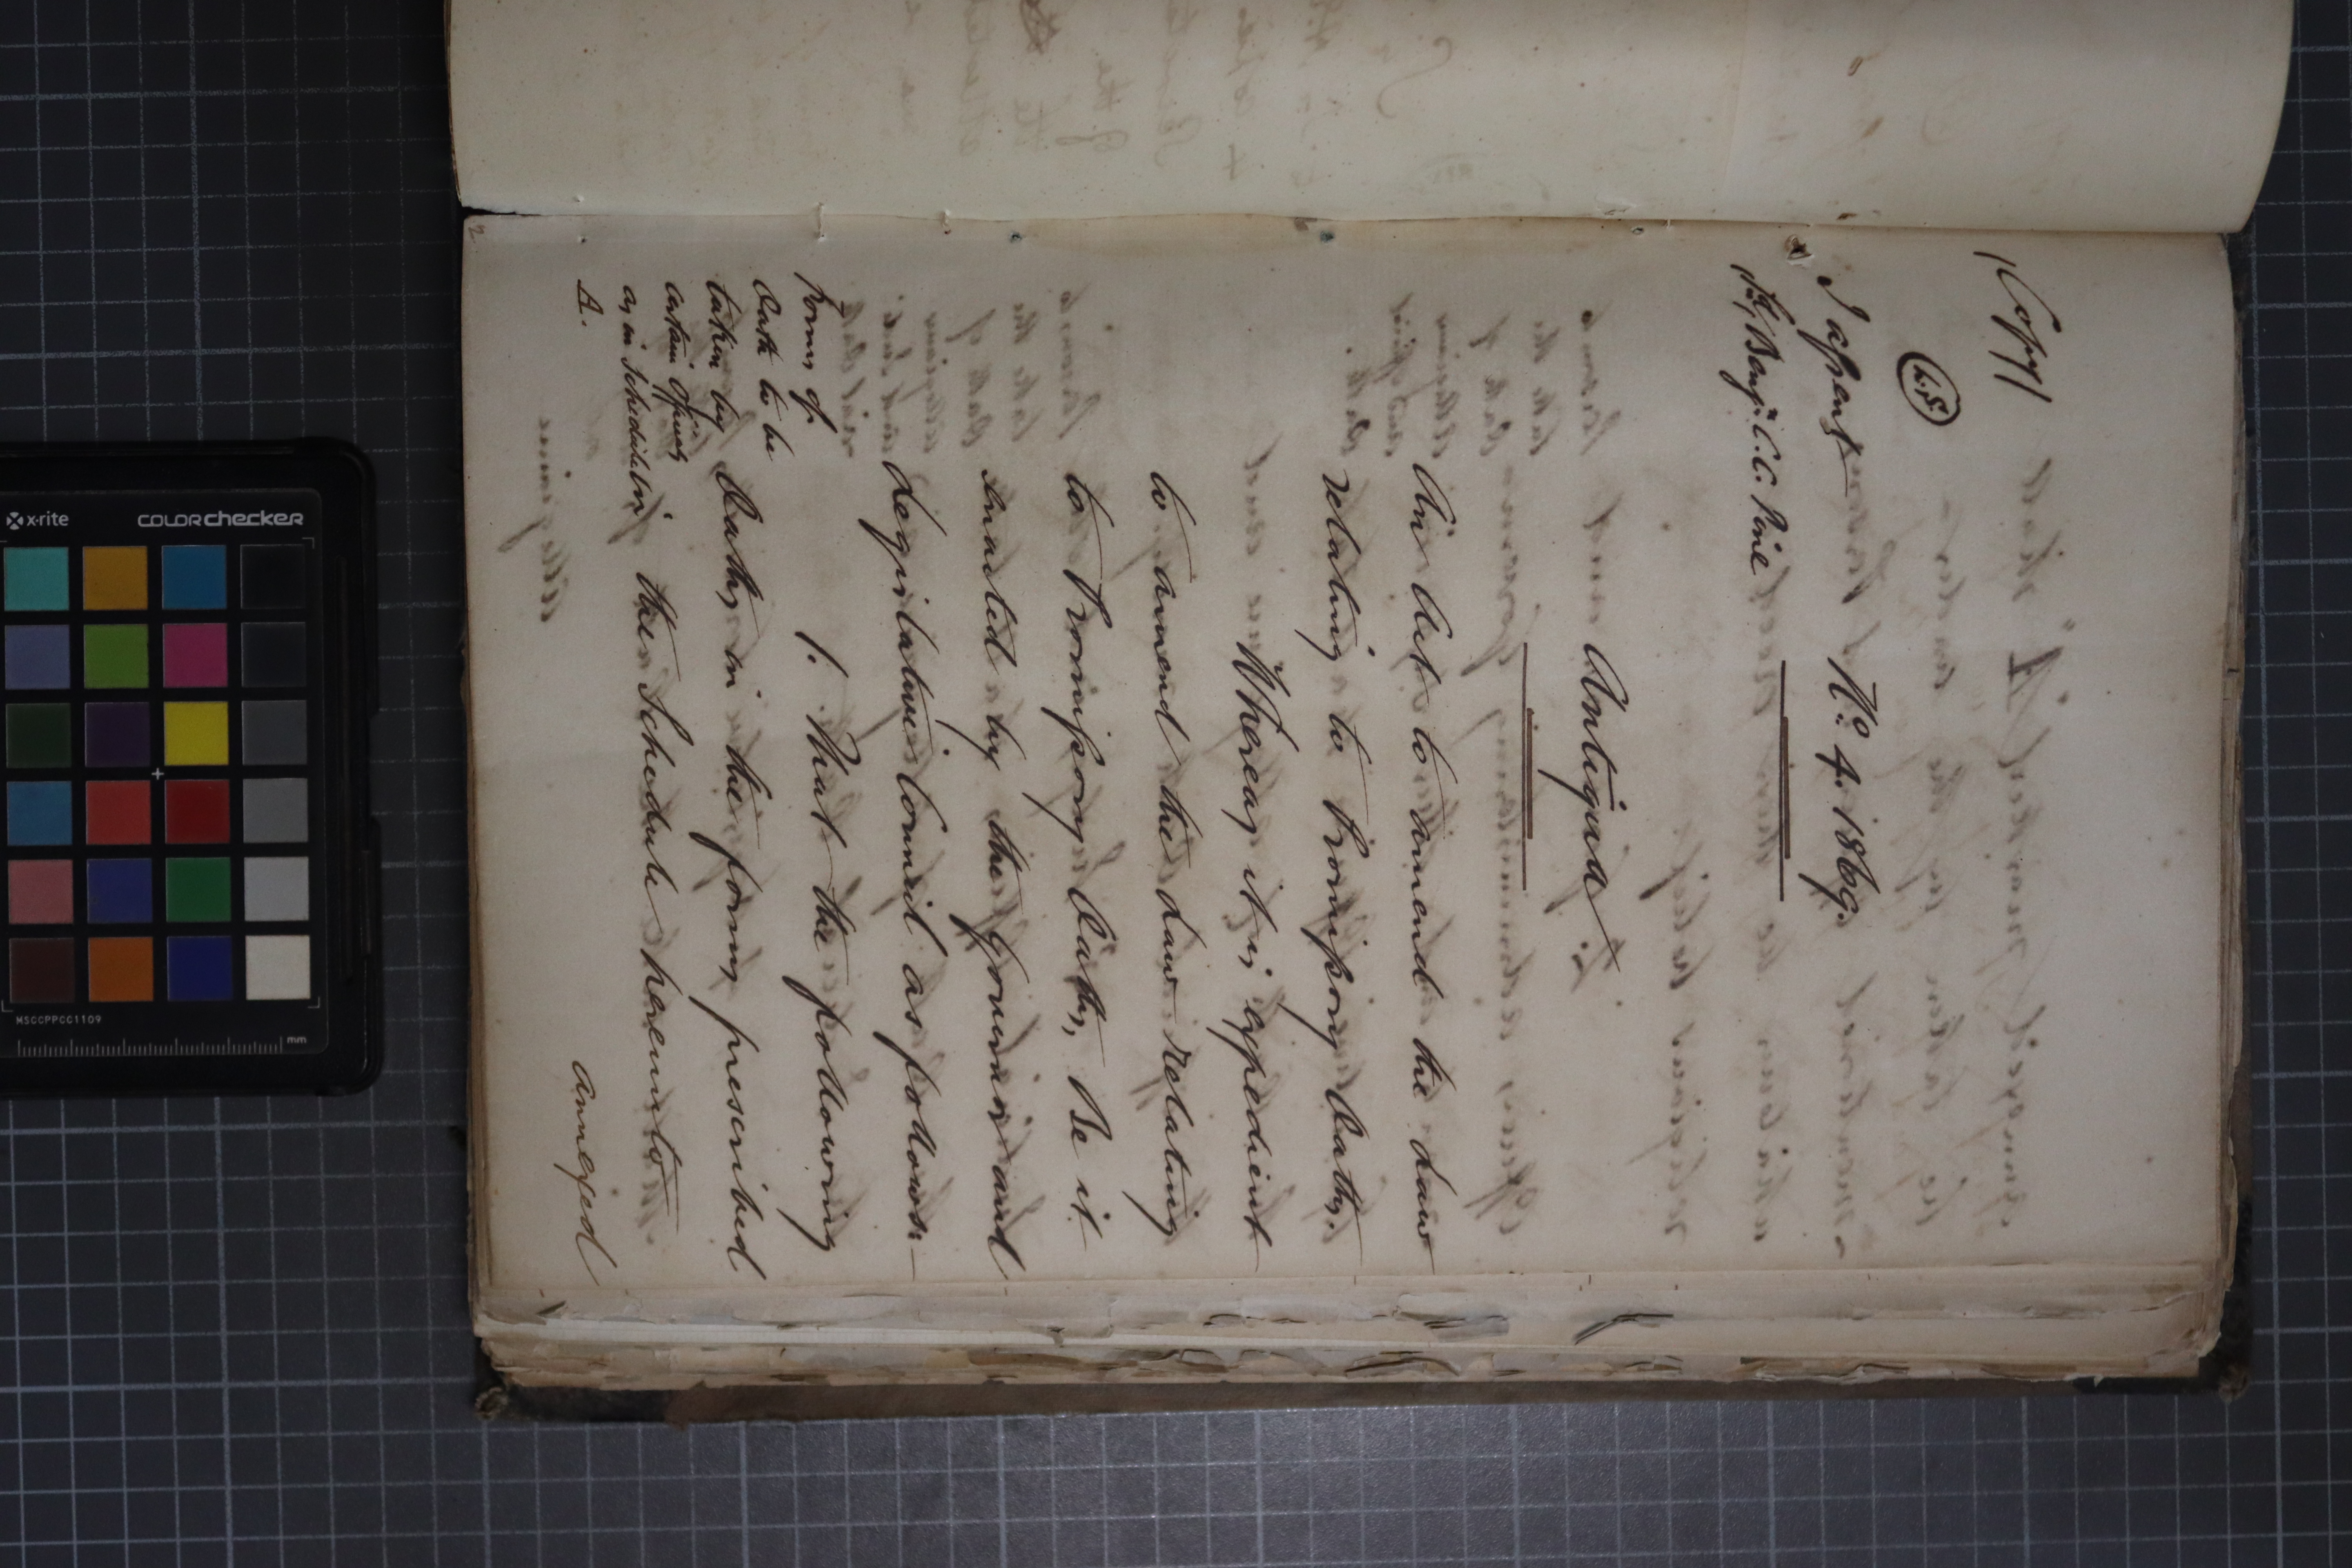 (Copy)
L.S.
I assent
Sd/ Benjn. C. C. Pine
No. 4. 1869.
Antigua
An Act to amend the Law
relating to Promissory Oaths.
Whereas it is expedient
to amend the Law relating
to Promissory Oaths, Be it
enacted by the Governor and
Legislative Council as follows:—
1. That the following
Oaths in the forms prescribed
in the Schedule hereunto
annexed
Forms of
Oath to be
taken by
certain Officers
as in Schedule
A.
x-rite
colorchecker
MSCCPPCC1109
mm